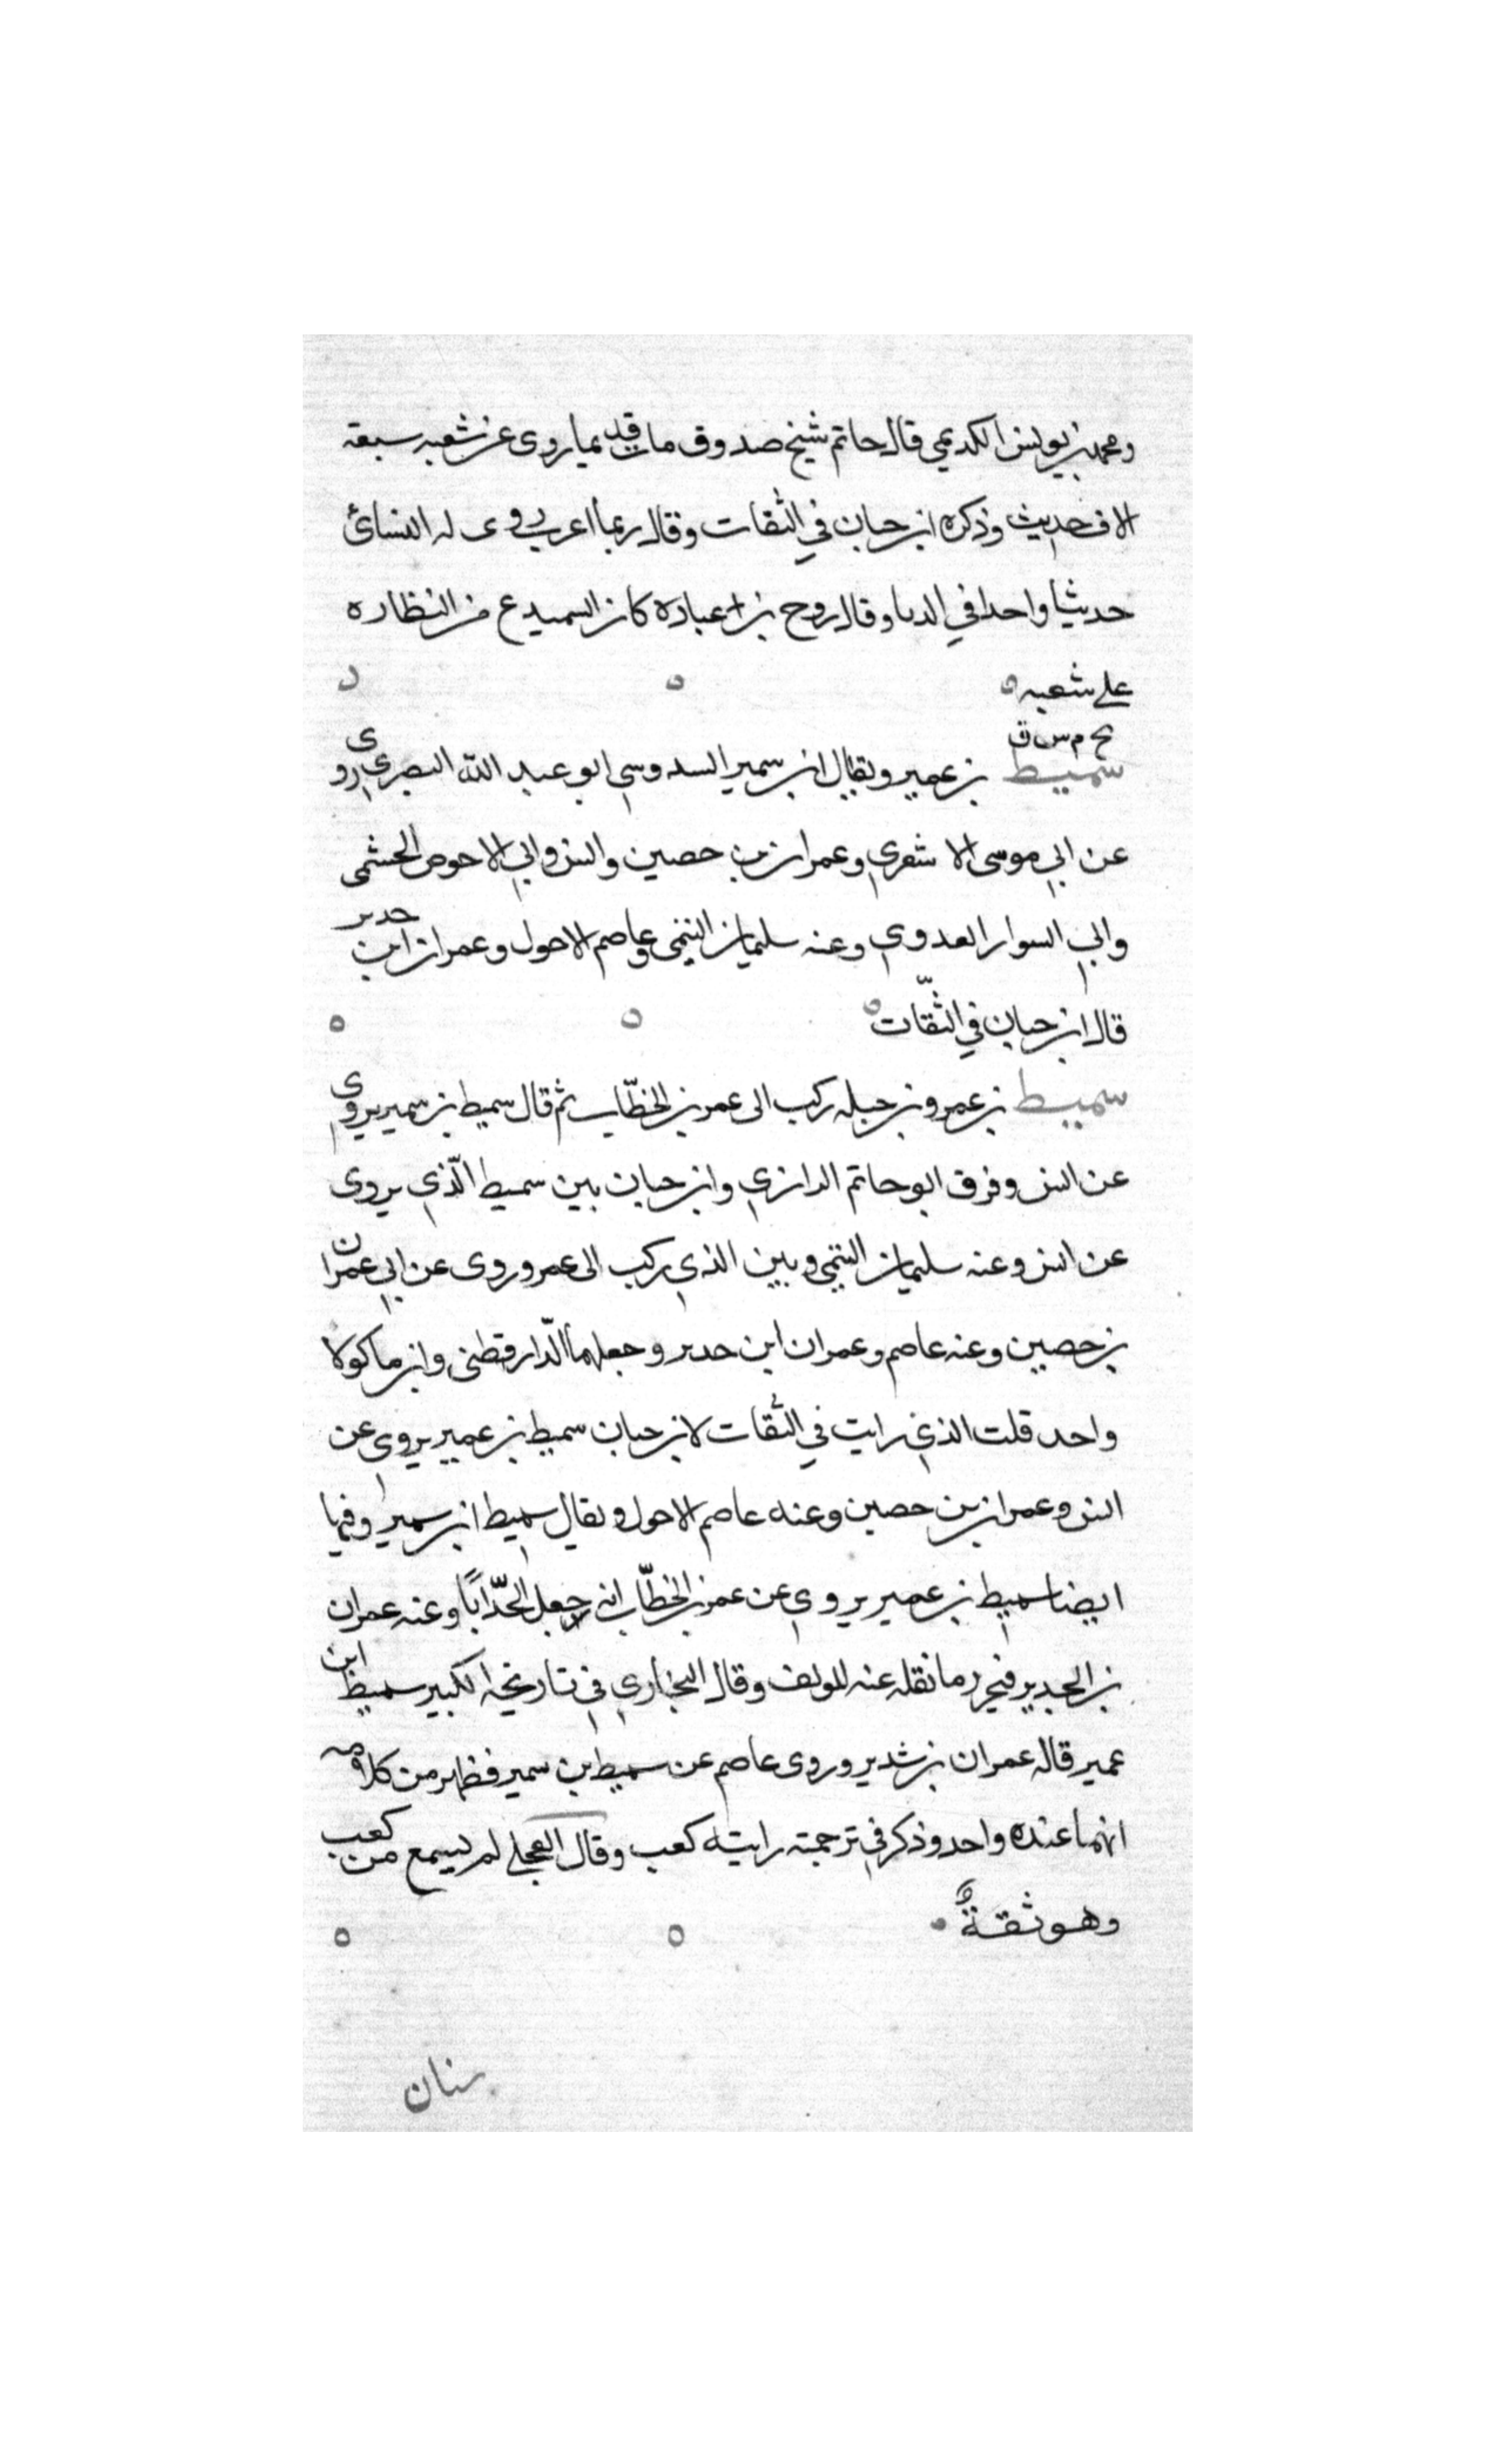 ومحمد بن يونس الكديمي قال حاتم شيخ صدوق مات قديما روى عن شعبه سبعه
الاف حديث وذكره ابن حبان في الثقات وقال ربما اغرب روى له النسائى
حديثا واحدا في الدبا وقال روح بن عباده كان السميدع من النظاره
على شعبه
بخ م س ق
سميط بن عمير ويقال ابن سمير السدوسي ابو عبد الله البصري روى
عن ابي موسى الاشعري وعمران بن حصين وانس وابي الاحوص الجشمى
وابي السوار العدوي وعنه سليمان التيمى وعاصم الاحول وعمران ابن حدير
قال ابن حبان في الثقات
سميط بن عمرو بن جبله ركب الى عمر بن الخطّاب ثم قال سميط بن سمير يروي
عن انس وفرق ابو حاتم الرازي وابن حبان بين سميط الّذي يروى
عن انس وعنه سليمان التيمي وبين الذي ركب الى عمر وروى عن ابي عمران
بن حصين وعنه عاصم وعمران ابن حدير وجعلهما الدّارقطنى وابن ماكولا
واحد قلت الذي رايت في الثقات لابن حبان سميط بن عمير يروي عن
انس وعمران بن حصين وعنه عاصم الاحول ويقال سميط ابن سمير وفيها
ايضا سميط بن عمير يروي عن عمر بن الخطّاب انه جعل الجدّ ابًا وعنه عمران
بن الحدير فيحرر ما نقله عنه المولف وقال البخاري في تاريخه الكبير سميط ابن
عمير قاله عمران بن شدير وروى عاصم عن سميط بن سمير فظهر من كلامه
انهما عنده واحد وذكر في ترجمته رايته كعب وقال العجلي لم يسمع من كعب
وهو ثقةٌ
سنان